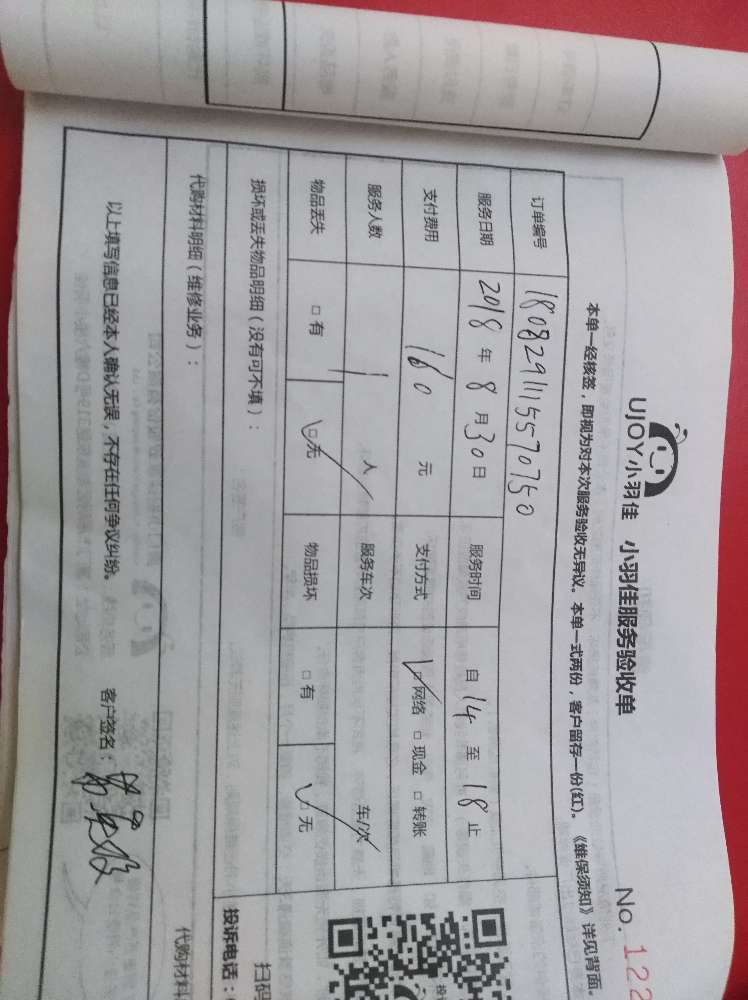 UJOY小羽佳 小羽佳服务验收单
No. 122
本单一经核签，即视为对本次服务验收无异议。本单一式两份，客户留存一份(红)。《维保须知》详见背面。
订单编号 1808291115570750
服务日期 2018 年 8 月 30 日 服务时间 自 14 至 18 止
支付费用 160 元 支付方式 ☑网络 □现金 □转账
服务人数 1 人 服务车次 车/次
物品丢失 □有 ☑无 物品损坏 □有 ☑无
损坏或丢失物品明细（没有可不填）：
代购材料明细（维修业务）：
以上填写信息已经本人确认无误，不存在任何争议纠纷。 客户签名：
扫码
投诉电话：
代购材料